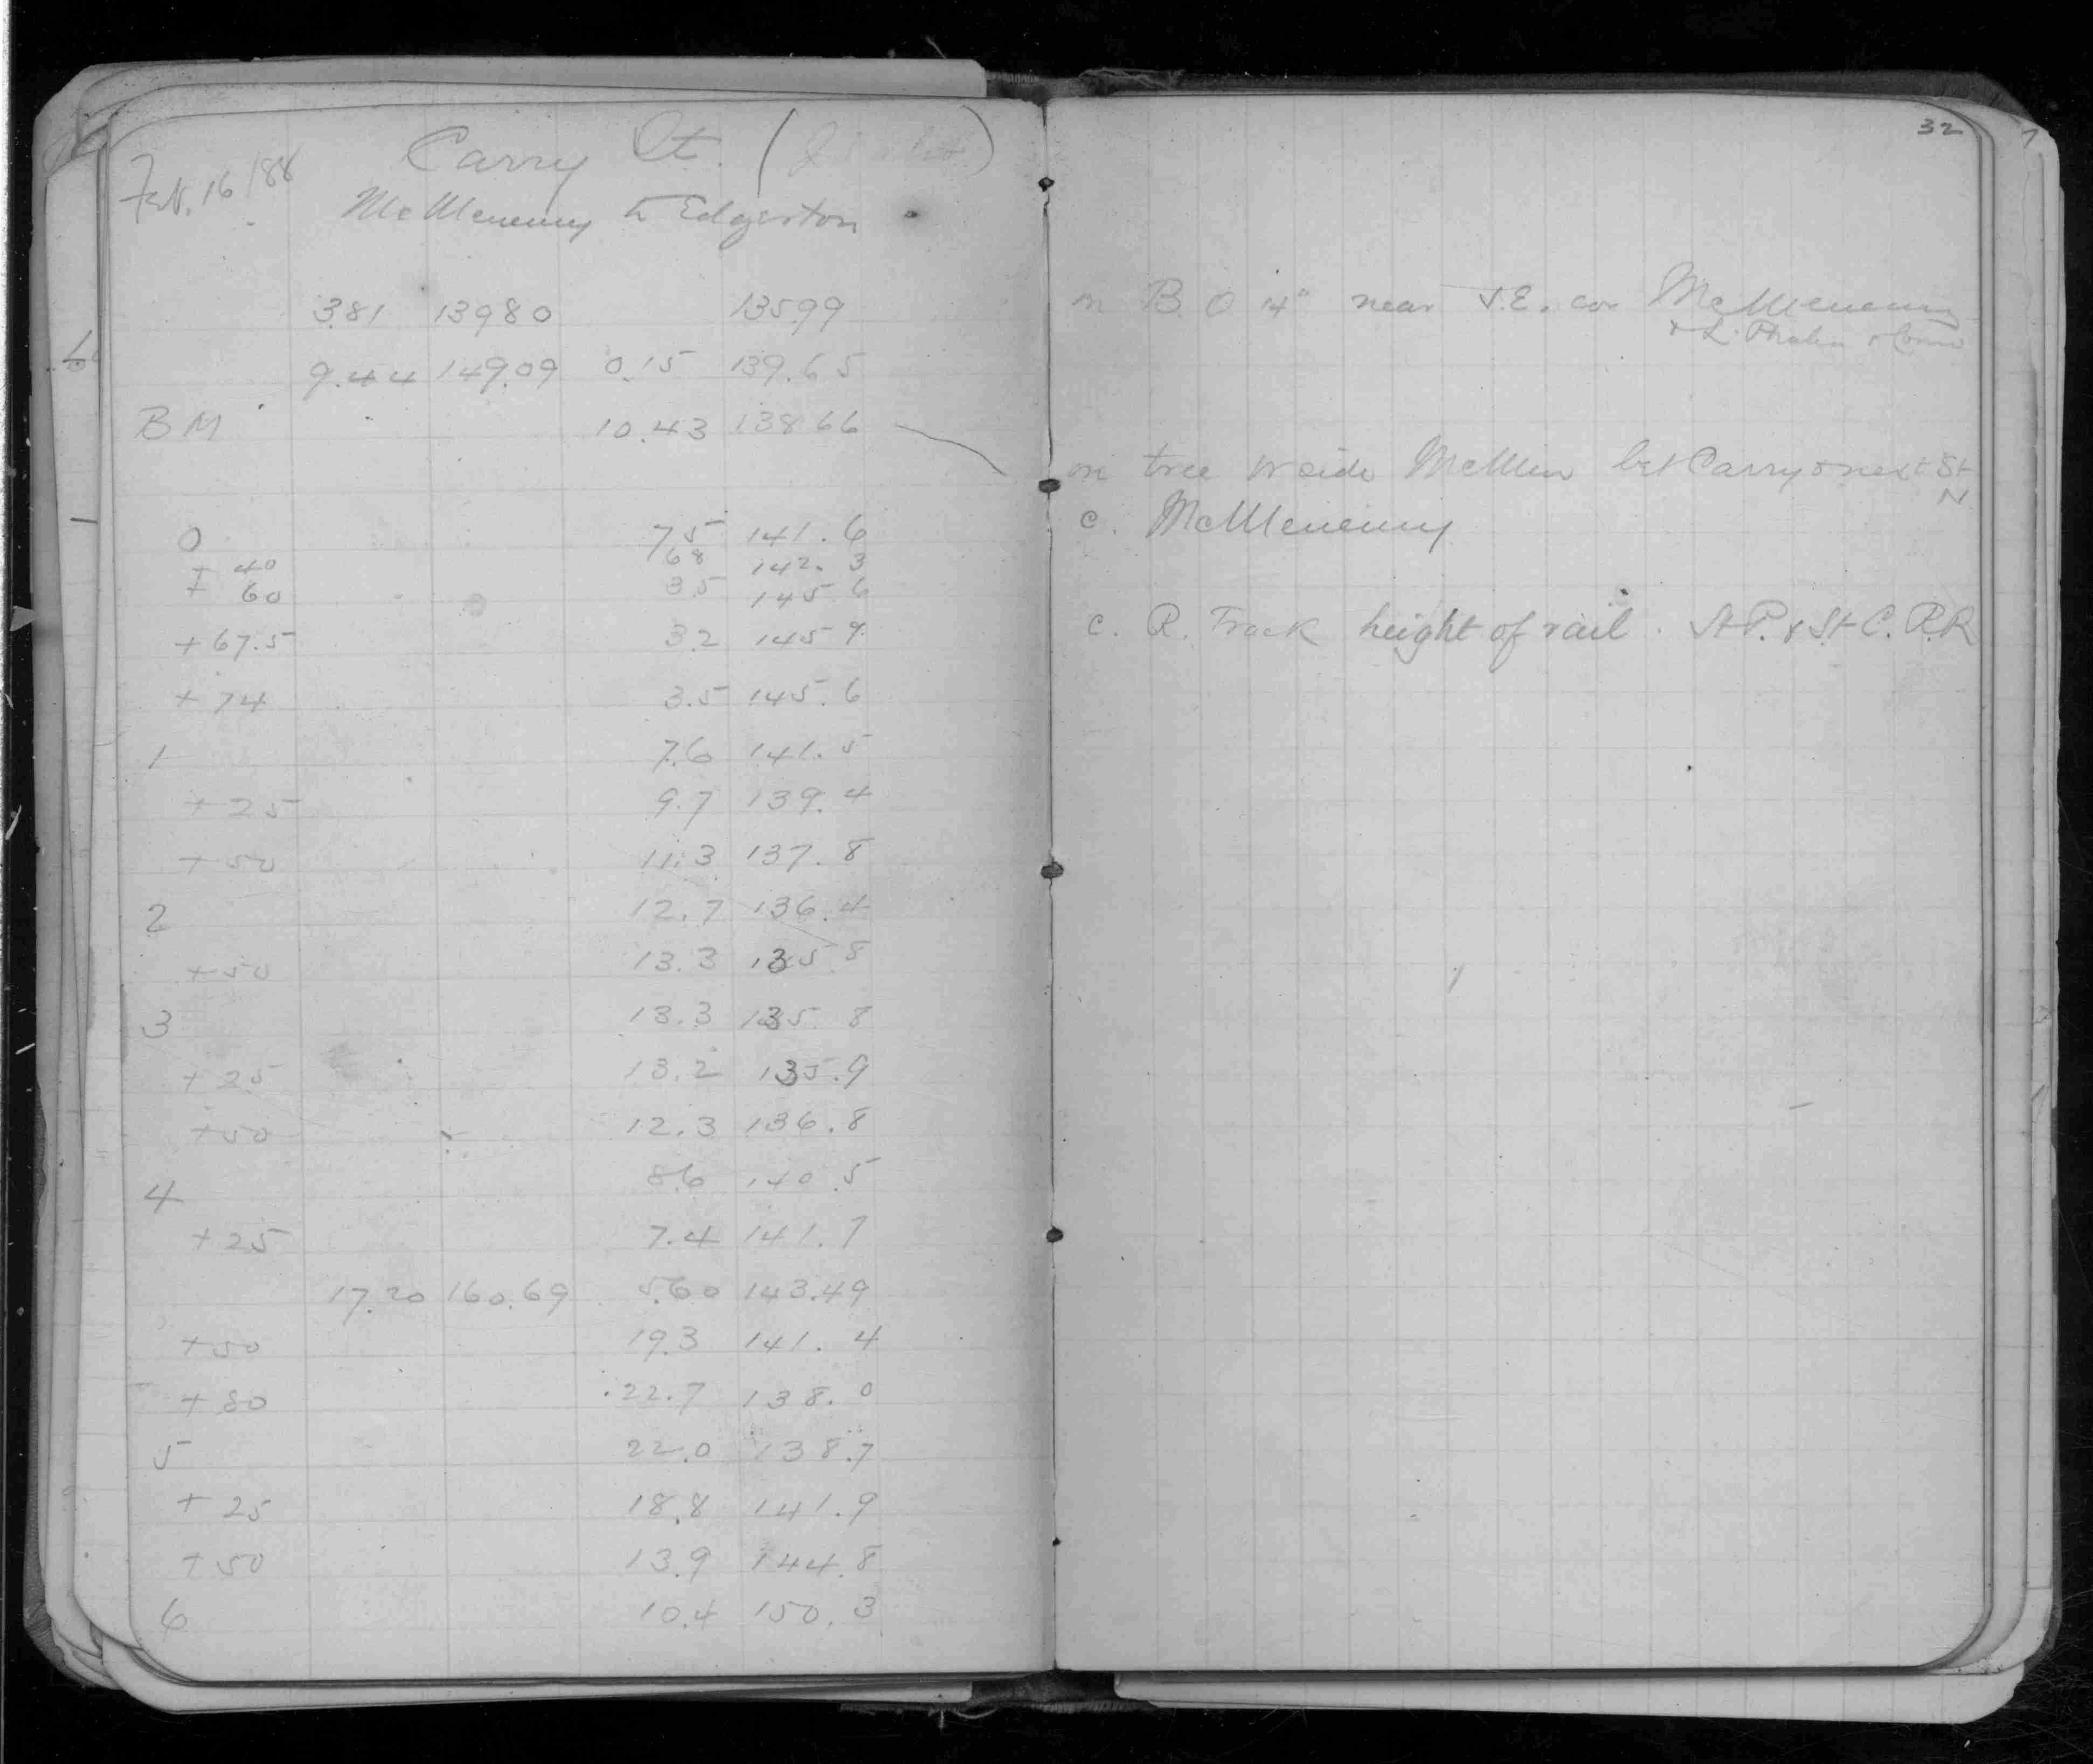 Feb. 16/88 Carry St. (
McMenemy to Edgerton
3.81 139.80 135.99
9.44 149.09 0.15 139.65
BM 10.43 138.66
0 7.5 141.6
+ 40 6.8 142.3
+ 60 3.5 145.6
+ 67.5 3.2 145.9
+ 74 3.5 145.6
1 7.6 141.5
+ 25 9.7 139.4
+ 50 11.3 137.8
2 12.7 136.4
+ 50 13.3 135.8
3 13.3 135.8
+ 25 13.2 135.9
+ 50 12.3 136.8
4 8.6 140.5
+ 25 7.4 141.7
17.20 160.69 5.60 143.49
+ 50 19.3 141.4
+ 80 22.7 138.0
5 22.0 138.7
+ 25 18.8 141.9
+ 50 13.9 144.8
6 10.4 150.3
32
on B. O 14" near S.E. cor McMenemy
& L. Phalen
on tree W side McMen bet Carry & next St
N
c. McMenemy
c. R. Track height of rail. St P. & St C. R.R